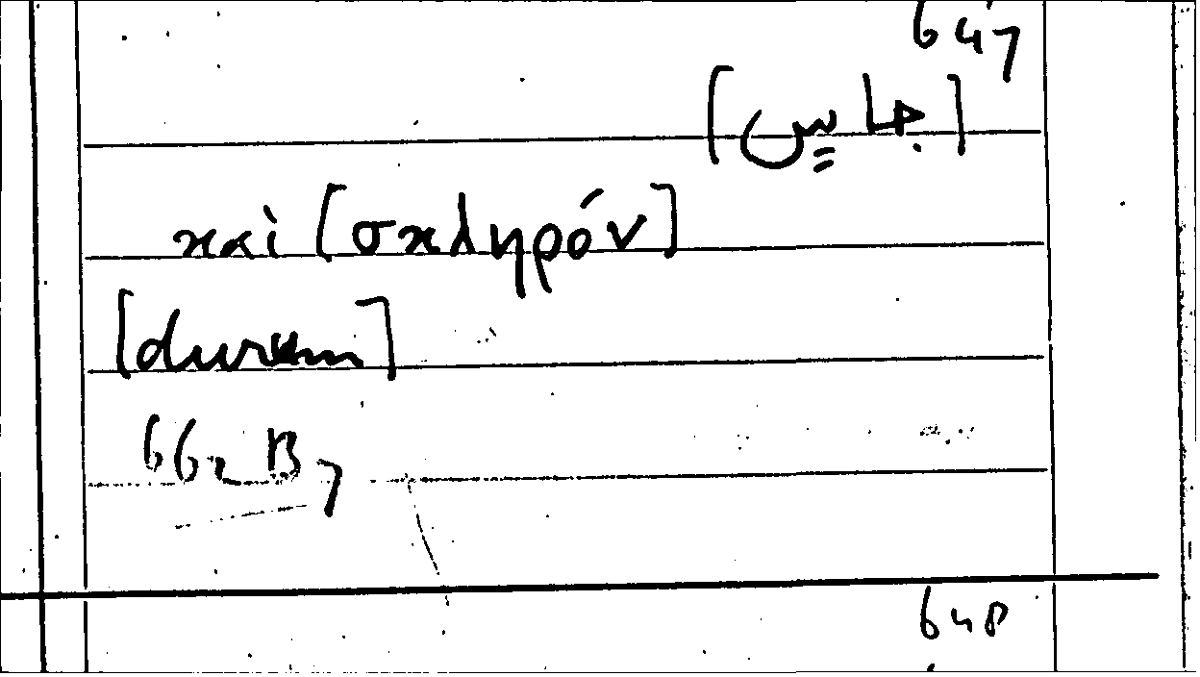 647
[جاسٍ]
καὶ [σκληρόν]
[durum]
662 B 7
648